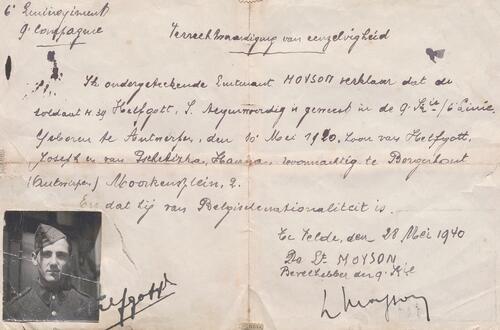 6e Linieregiment
9e Compagnie
Terrechtvaardiging van eenzelvigheid
Ik ondergeteekende Luitenant MOYSON verklaar dat de
soldaat M39 Helfgott, S. tegenwoordig is geweest in de 9e Kie/6 Linie
Geboren te Antwerpen, den 10 Mei 1920. Zoon van Helfgott,
Josef en van Hanna, woonachtig te Borgerhout
(Antwerpen) Moorkensplein, 2.
En dat hij van Belgische nationaliteit is.
Te Velde, den 28 Mei 1940
De Lt MOYSON
Bevelhebber der 9e Kie
Helfgott
L Moyson